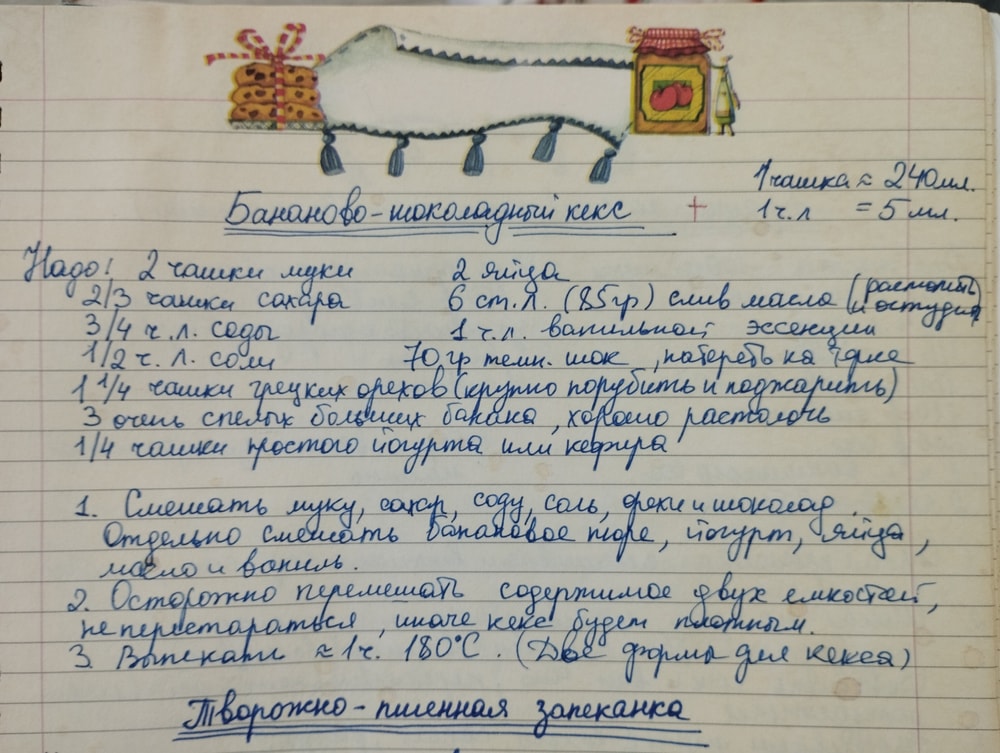 1 чашка ≈ 240 мл.
Бананово-шоколадный кекс +
1 ч.л = 5 мл.
Надо! 2 чашки муки 2 яйца
2/3 чашки сахара 6 ст.л. (85гр) слив масла (растопить и остудить
3/4 ч.л. соды 1 ч.л. ванильной эссенции
1/2 ч.л. соли 70 гр темн. шок, натереть на тёрке
1 1/4 чашки грецких орехов (крупно порубить и поджарить)
3 очень спелых больших банана, хорошо растолочь
1/4 чашки простого йогурта или кефира
1. Смешать муку, сахар, соду, соль, орехи и шоколад.
Отдельно смешать банановое пюре, йогурт, яйца,
масло и ваниль.
2. Осторожно перемешать содержимое двух емкостей,
не перестараться, иначе кекс будет плотным.
3. Выпекать ≈ 1ч. 180°С. (Две формы для кекса)
Творожно-пшенная запеканка